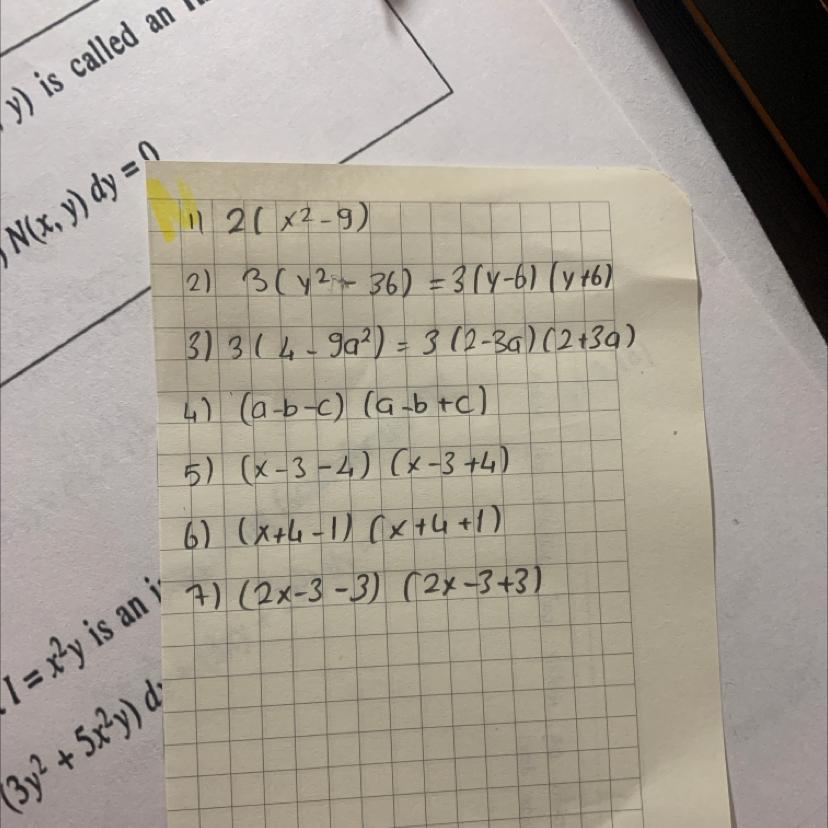 y) is called an
N(x, y) dy = 0
1) 2( x² - 9)
2) 3( y² - 36) = 3(y-6) (y+6)
3) 3( 4 - 9a²) = 3 (2-3a) (2+3a)
4) (a-b-c) (a-b+c)
5) (x-3-4) (x-3+4)
6) (x+4-1) (x+4+1)
7) (2x-3-3) (2x-3+3)
I = x²y is an
(3y² + 5x²y)